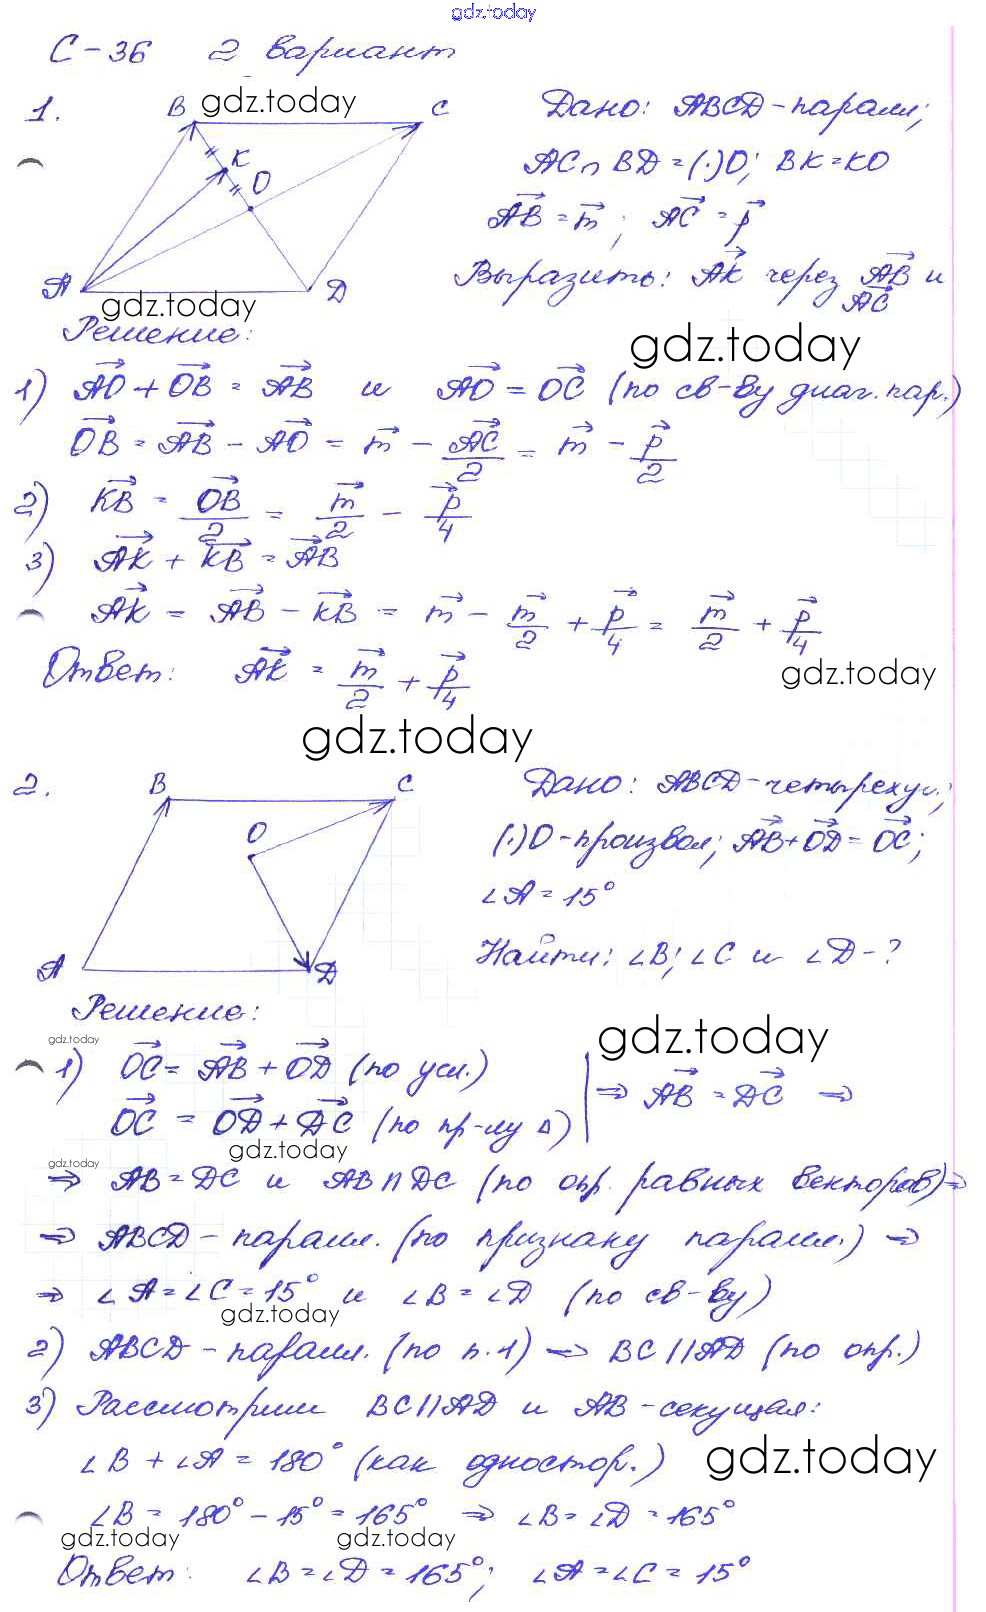 gdz.today
С-36 2 вариант
1.
B gdz.today C
K
O
A D
gdz.today
Дано: ABCD-паралл;
AC∩BD=(·)O; BK=KO
AB→ = m→; AC→ = p→
Выразить: AK→ через AB→ и AC→
Решение:
gdz.today
1) AO→ + OB→ = AB→ и AO→ = OC→ (по св-ву диаг. пар.)
OB→ = AB→ - AO→ = m→ - AC→/2 = m→ - p→/2
2) KB→ = OB→/2 = m→/2 - p→/4
3) AK→ + KB→ = AB→
AK→ = AB→ - KB→ = m→ - m→/2 + p→/4 = m→/2 + p→/4
Ответ: AK→ = m→/2 + p→/4
gdz.today
gdz.today
2.
B C
O
A D
Дано: ABCD-четырехуг;
(·)O-произвол; AB→ + OD→ = OC→;
∠A = 15°
Найти: ∠B; ∠C и ∠D-?
Решение:
gdz.today
gdz.today
1) OC→ = AB→ + OD→ (по усл.)
OC→ = OD→ + DC→ (по пр-лу Δ) | ⇒ AB→ = DC→ ⇒
gdz.today
gdz.today
⇒ AB = DC и AB ∩ DC (по опр. равных векторов) ⇒
⇒ ABCD - паралл. (по признаку паралл.) ⇒
⇒ ∠A = ∠C = 15° и ∠B = ∠D (по св-ву)
gdz.today
2) ABCD - паралл. (по п.1) ⇒ BC || AD (по опр.)
3) Рассмотрим BC || AD и AB - секущая:
∠B + ∠A = 180° (как одностор.)
gdz.today
∠B = 180° - 15° = 165° ⇒ ∠B = ∠D = 165°
gdz.today gdz.today
Ответ: ∠B = ∠D = 165°; ∠A = ∠C = 15°